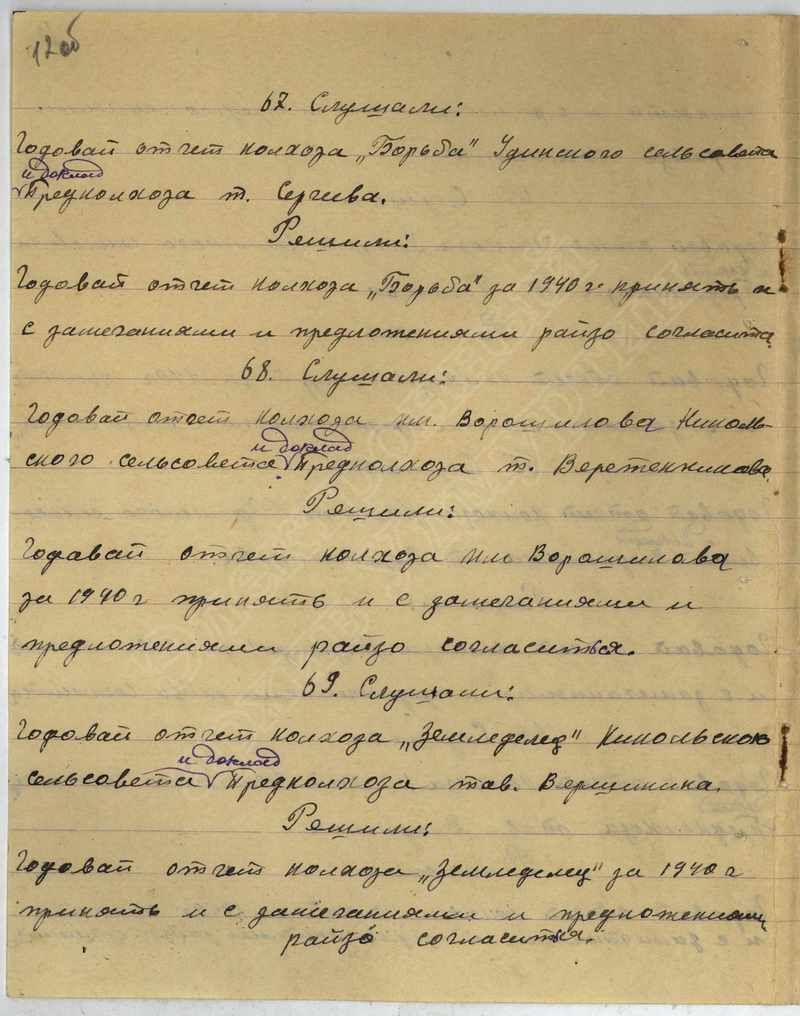 12об
67. Слушали:
Годовай отчет колхоза „Борьба" Удинского сельсовета
и доклад
Предколхоза т. Сергиева.
Решили:
Годовай отчет колхоза „Борьба" за 1940 г. принять и
с замечаниями и предложениями райзо согласится
68. Слушали:
Годовай отчет колхоза им. Ворошилова Николь-
ского сельсовета и доклад Предколхоза т. Веретенникова
Решили:
Годавай отчет колхоза им Ворошилова
за 1940 г принять и с замечаниями и
предложениями райзо согласиться.
69. Слушали:
Годовай отчет колхоза „Земледелец" Никольского
сельсовета и доклад Предколхоза тав. Вершинина.
Решили:
Годовай отчет колхоза „Земледелец" за 1940 г
принять и с замечаниями и предложениями
райзо согласиться.